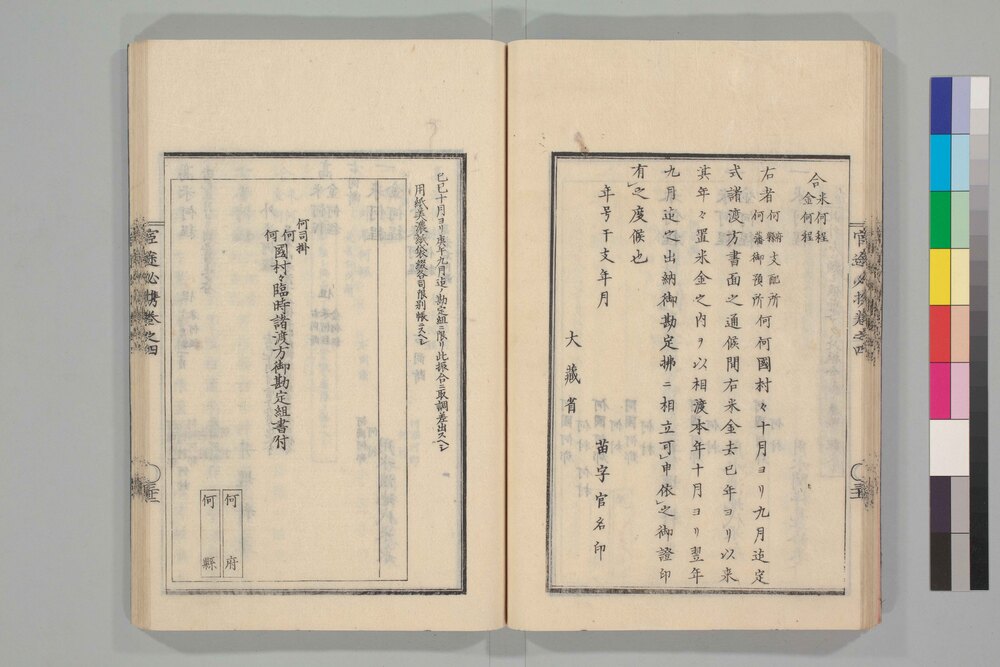 合 米何程
金何程
右者 何府県支配所
何藩御預所 何何國村々十月ヨリ九月迄定
式諸渡方書面之通候間右米金去巳年ヨリ以来
其年々置米金之内ヲ以相渡本年十月ヨリ翌年
九月迄之出納御勘定拂ニ相立可申依之御證印
有之度候也
年号干支年月
苗字官名印
大藏省
巳巳十月ヨリ庚午九月迄ノ勘定組ニ限リ此振合ニ取調差出スヘシ
用紙美濃紙袋綴各司限別帳ニスヘシ
何司掛
何
何 國村々臨時諸渡方御勘定組書付
何府
何縣
官途必携卷之四